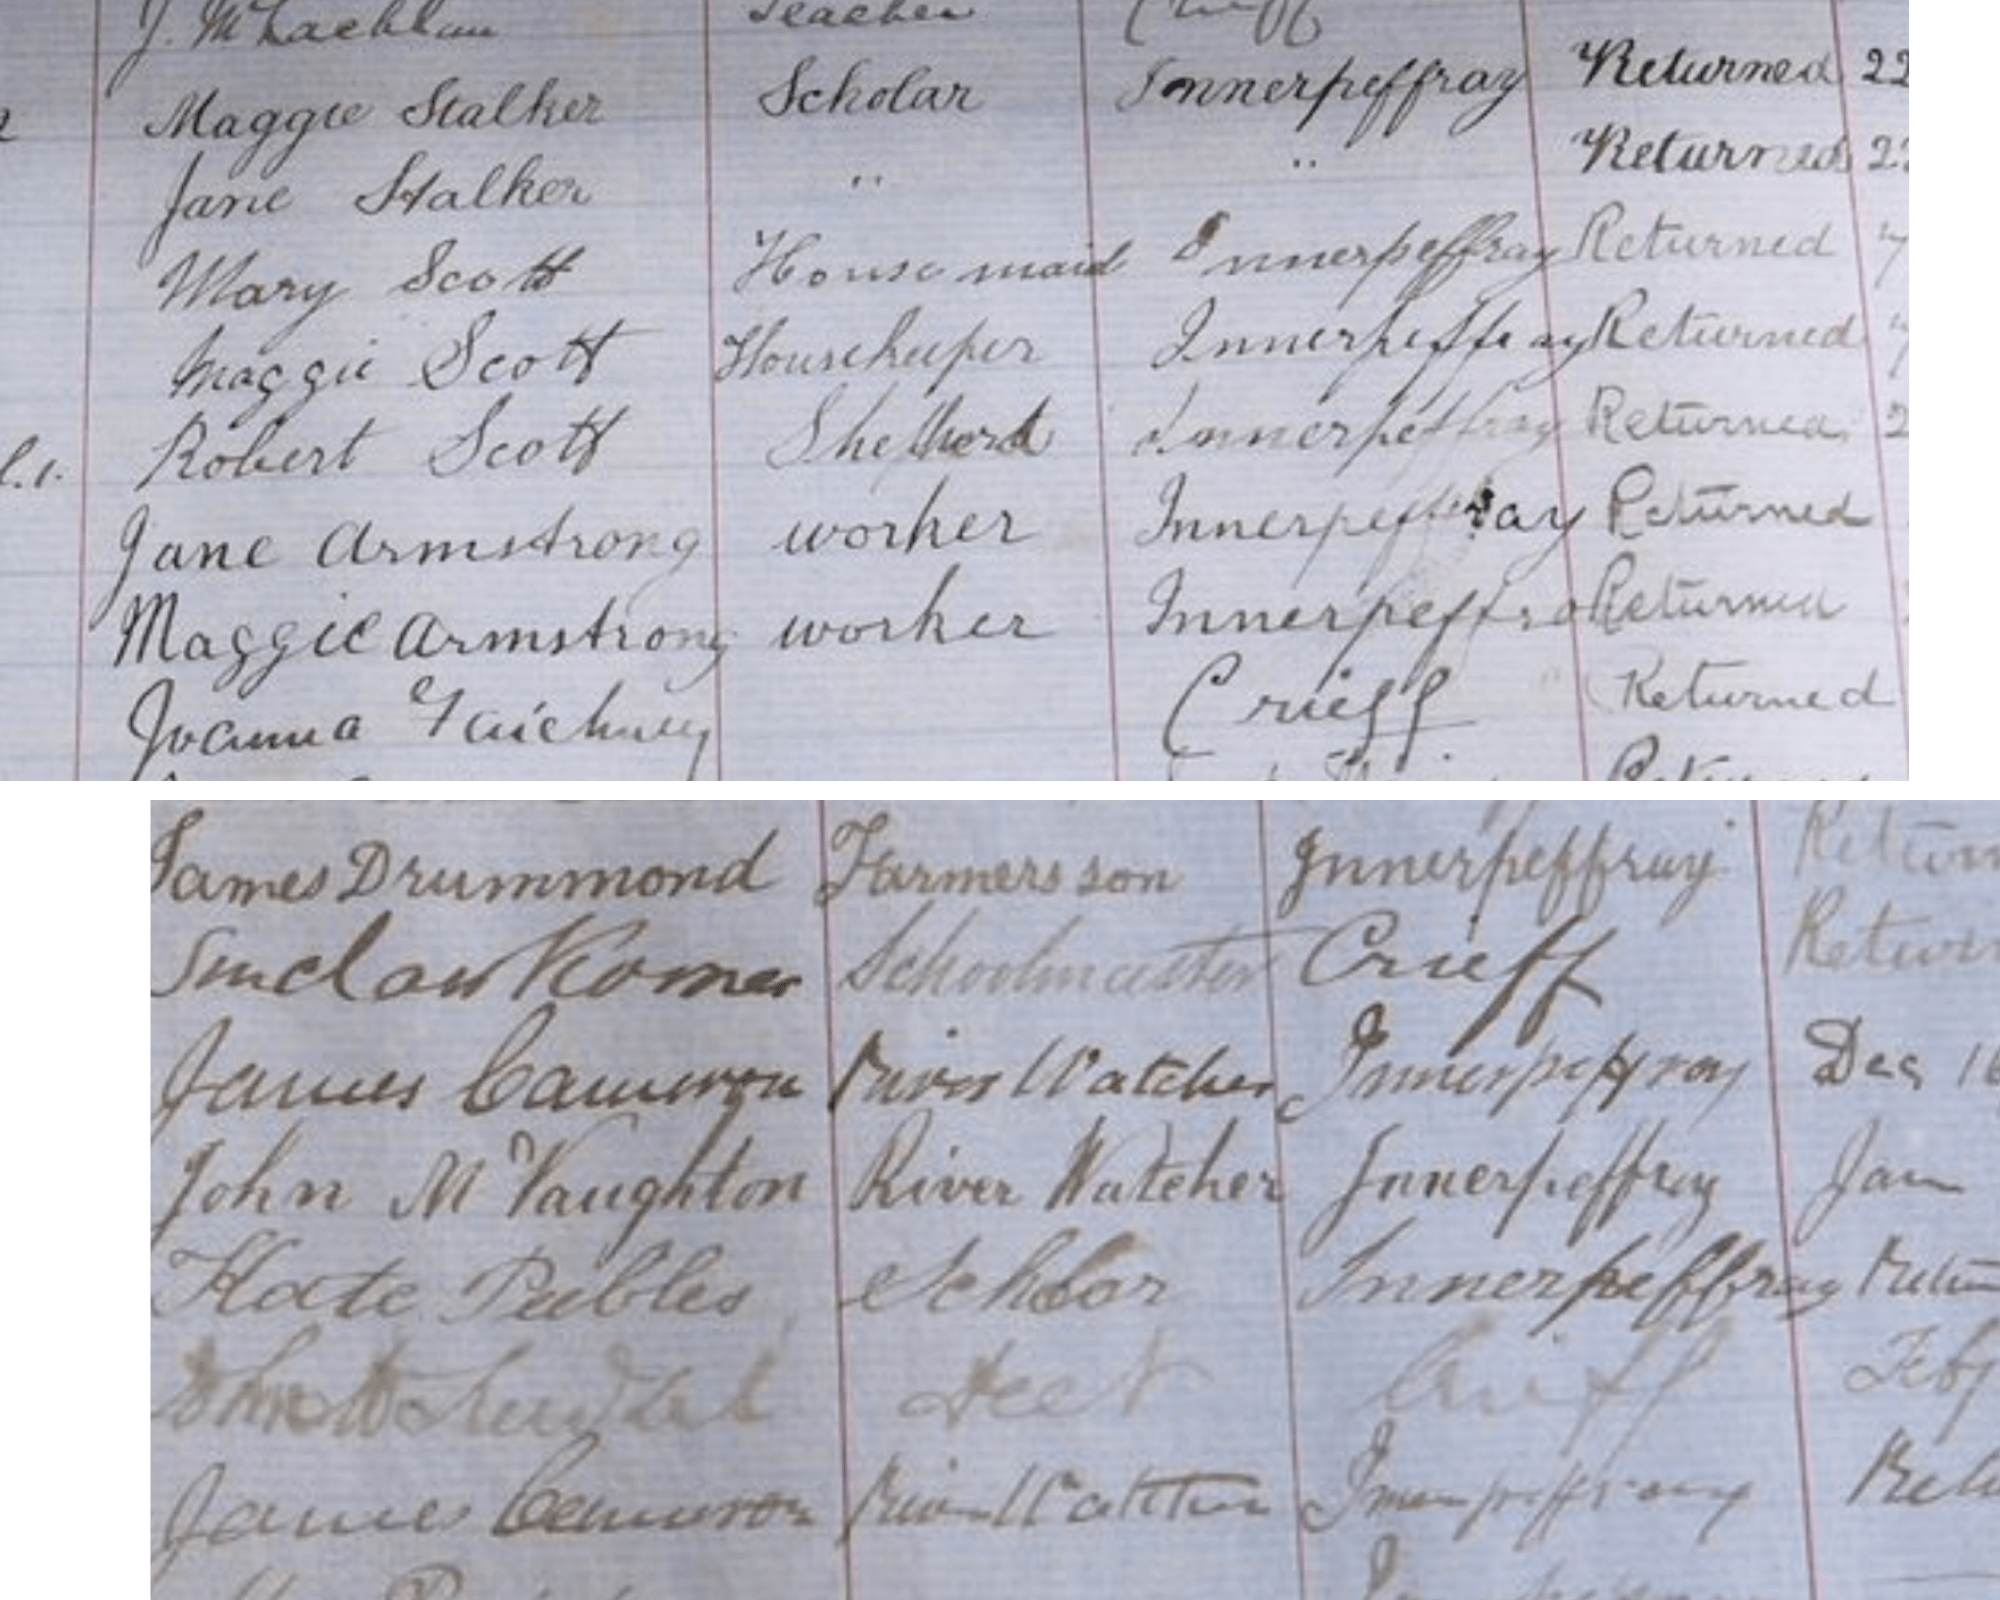 J. McLachlan Teacher Crieff
Maggie Stalker Scholar Innerpeffray Returned 22
Jane Stalker " " Returned 22
Mary Scott Housemaid Innerpeffray Returned 7
Maggie Scott Housekeeper Innerpeffray Returned 7
Robert Scott Shepherd Innerpeffray Returned 2
Jane Armstrong worker Innerpeffray Returned
Maggie Armstrong worker Innerpeffra Returned
Joanna Crieff Returned
James Drummond Farmers son Innerpeffray Return
Sinclair Korner Schoolmaster Crieff Return
James Cameron River Watcher Innerpeffray Dec 16
John McNaughton River Watcher Innerpeffray Jan
Kate Peebles Scholar Innerpeffray Retu
Crieff Feby
James Cameron River Watcher Innerpeffray Retu